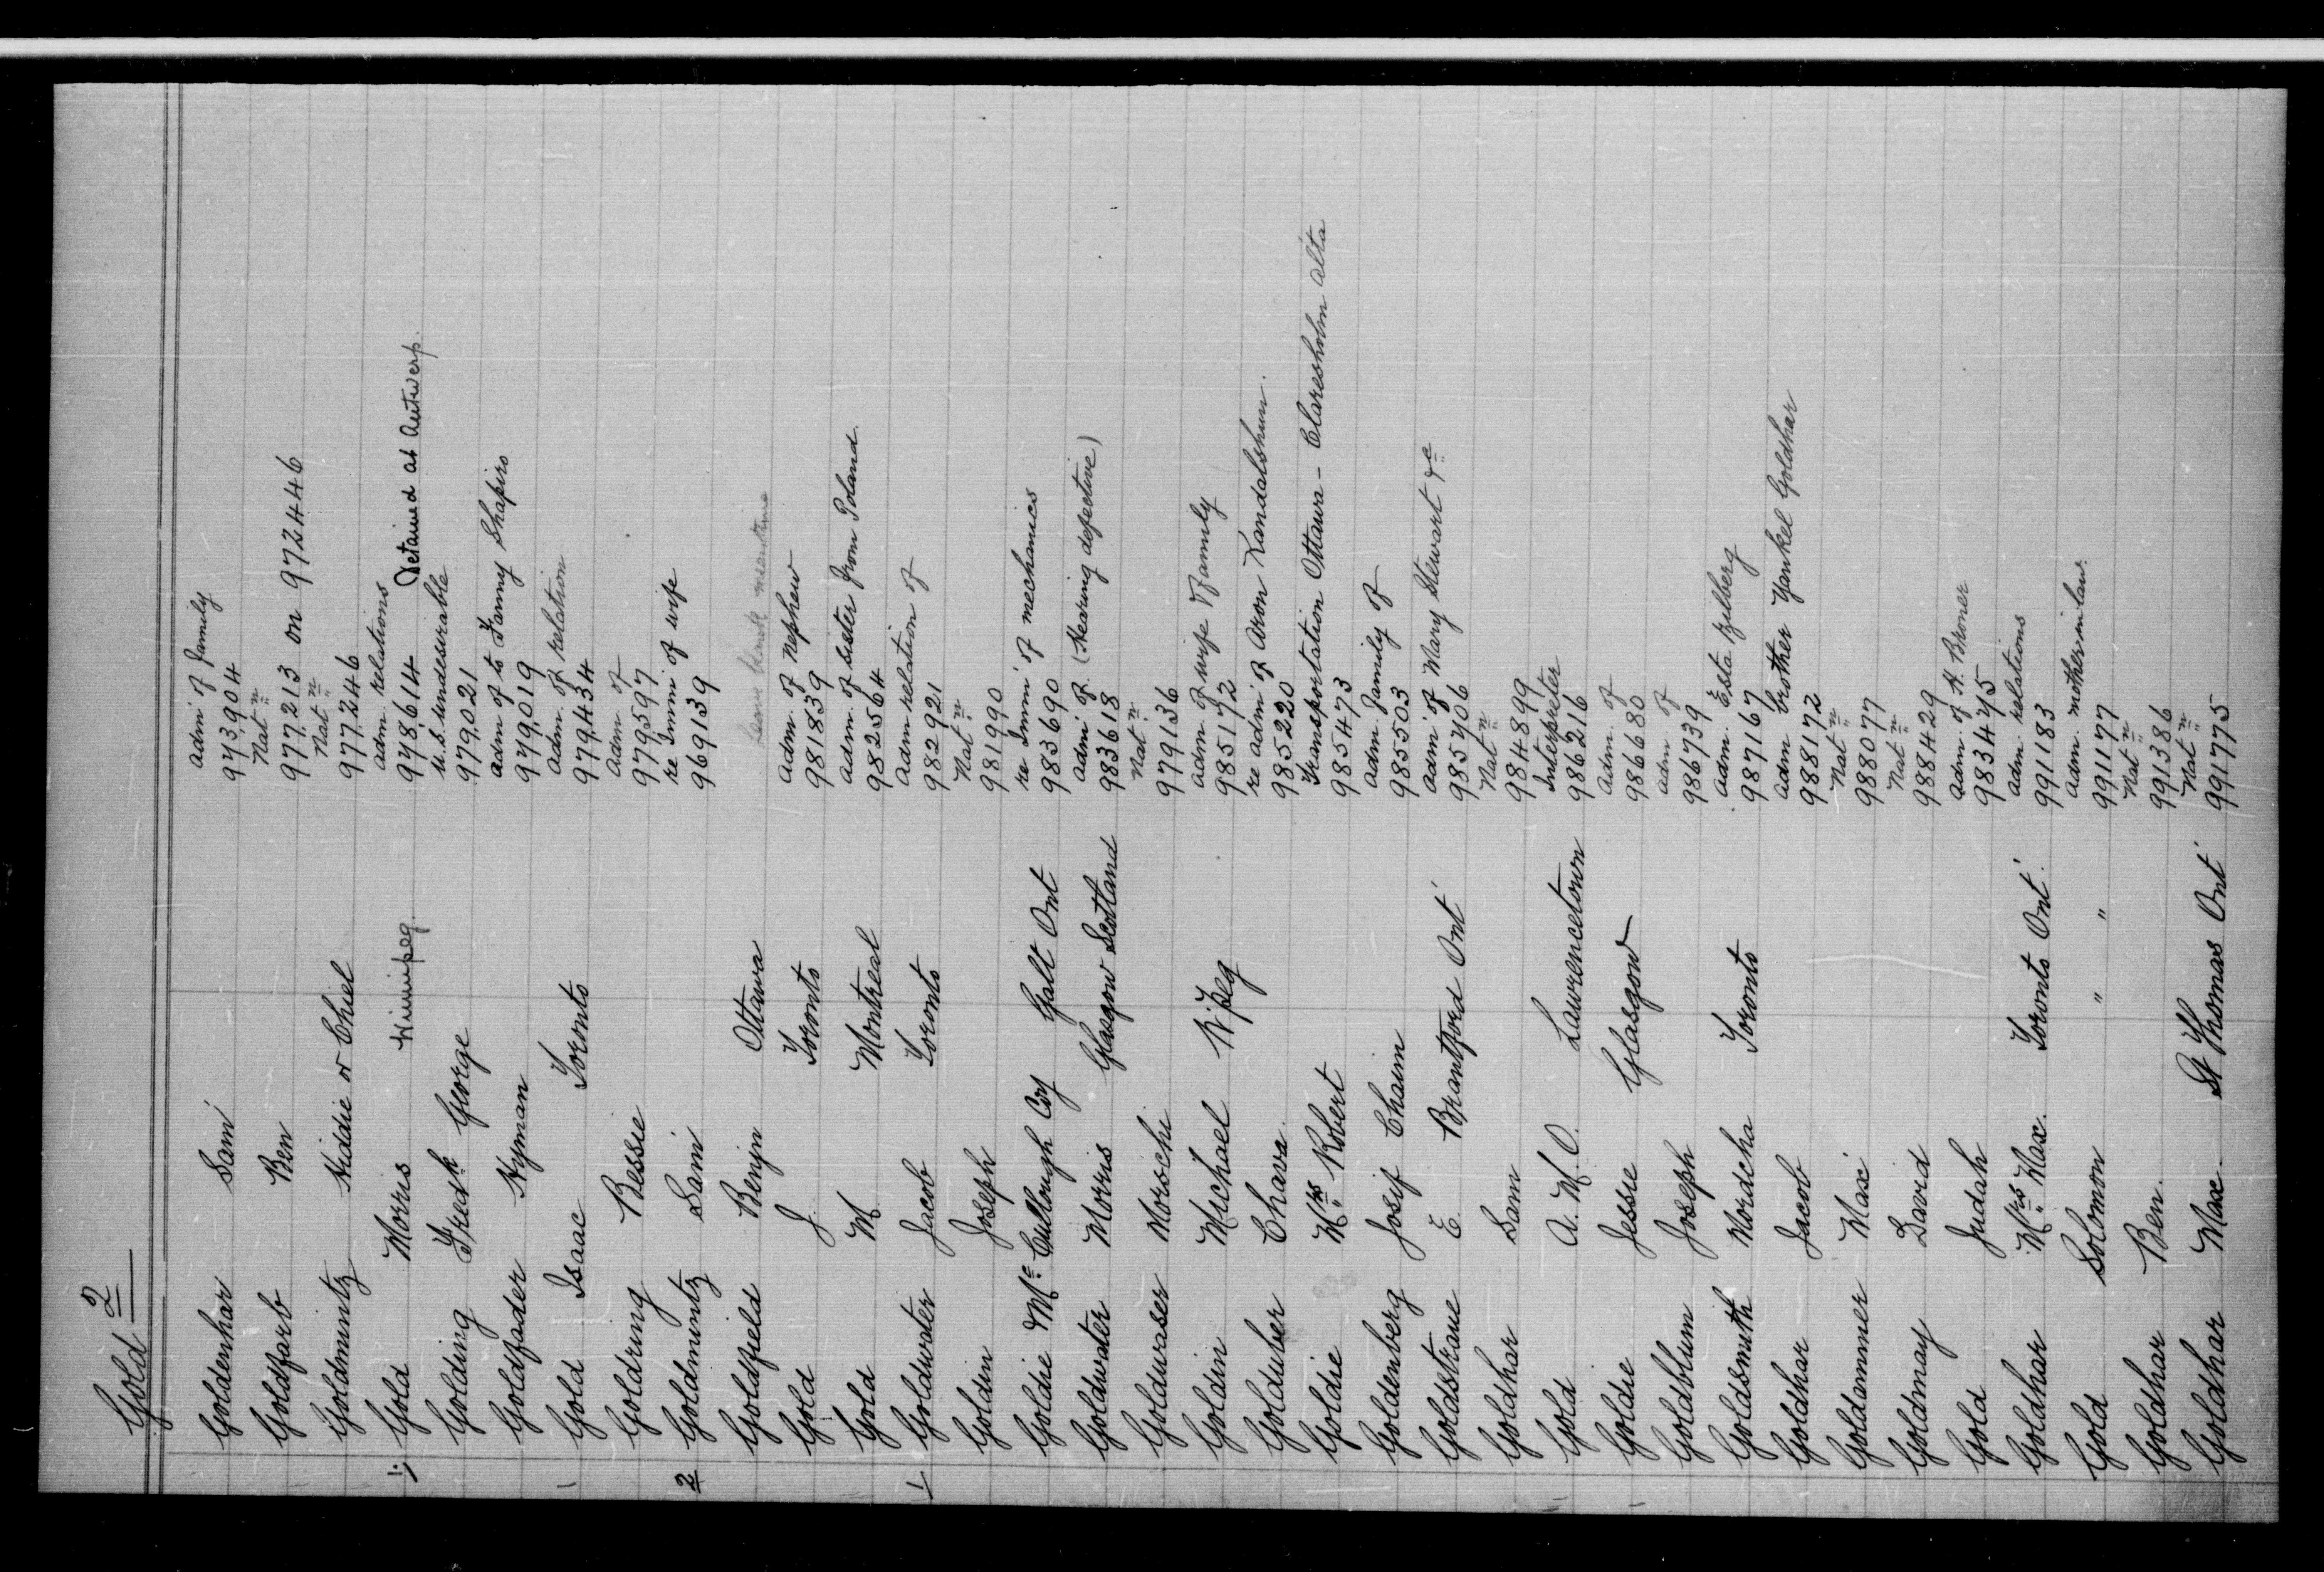 Gold 2
adm' of family
Goldenhar Sam' 973904
Nat n
Goldfarb Ben 977213 on 972446
Nat n
Goldmintz Kiddie or Chiel 977246
adm. relations
1; Gold Morris Winnipeg 978614 Detained at Antwerp.
U.S. undesirable
Golding Fredk George 979021
adm of to Fanny Shapiro
Goldfader Hyman 979019
adm. of relation
Gold Isaac Toronto 979434
adm. of
Goldring Bessie 979597
re Immi of wife
2 Goldmintz Sam' 969139
Leave blank meantime
Goldfield Benjn Ottawa
adm. of nephew
Gold J. Toronto 981839
adm. of sister from Poland
Gold M Montreal 982564
adm relation of
1 Goldwater Jacob Toronto 982921
Nat n
Goldin Joseph 981990
re Immi' of mechanics
Goldie Mc Cullough Coy Galt Ont 983690
adm' of (Hearing defective)
Goldwater Morris Glasgow Scotland 983618
Nat n
Goldwaser Morschi 979136
adm. of wife & family
Goldin Michael W'peg 985172
re adm' of Aron Kandalshun.
Golduber Chava. 985220
Transportation Ottawa - Claresholm Alta
Goldie Mrs Robert 985473
adm. family of
Goldenberg Josif Chaim 985503
adm' of Mary Stewart &c
Goldstrane E. Brantford Ont' 985406
Nat n
Goldhar Sam 984899
Interpreter
Gold A. M. O. Lawrencetown 986216
adm. of
Goldie Jessie Glasgow 986680
adm. of
Goldblum Joseph 986739
adm. Esta Zelberg
Goldsmith Mordcha Toronto 987167
adm brother Yankel Goldhar
Goldhar Jacob 988172
Nat n
Goldammer Max' 988077
Nat n
Goldmay David 988429
adm. of H. Broner
Gold Judah 983475
adm. relations
Goldhar Mrs Max. Toronto Ont'. 991183
adm. mother in law.
Gold Solomon " " 991177
Nat n
Goldhar Ben. 991386
Nat n
Goldhar Max St Thomas Ont' 991775